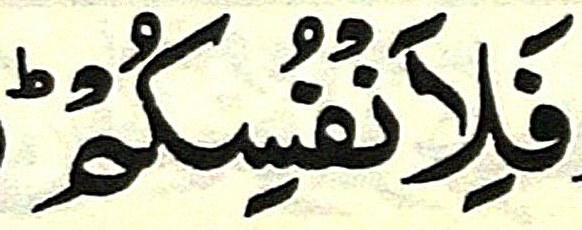 فَلِاَنْفُسِكُمْ ؕ